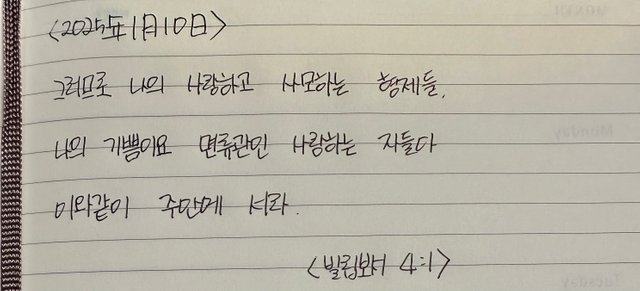 <2025年 1月 10日>
그러므로 나의 사랑하고 사모하는 형제들,
Monday
나의 기쁨이요 면류관인 사랑하는 자들아
이와같이 주안에 서라.
<빌립보서 4:1>
Tuesday